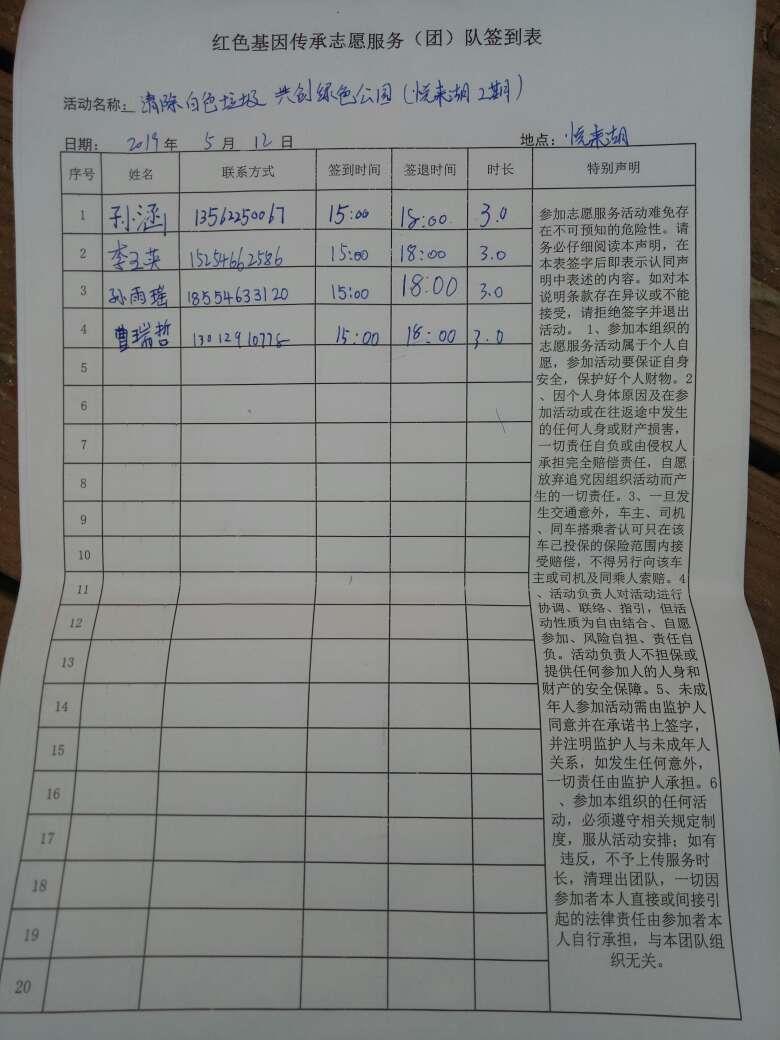 红色基因传承志愿服务（团）队签到表
活动名称：清除白色垃圾 共创绿色公园（悦来湖2期）
日期： 2019年 5月 12日 地点：悦来湖
序号 姓名 联系方式 签到时间 签退时间 时长 特别声明
1 孙涵 13562250067 15:00 18:00 3.0
2 李玉英 15254662586 15:00 18:00 3.0
3 孙雨瑶 18554633120 15:00 18:00 3.0
4 曹瑞哲 15:00 18:00 3.0
5
6
7
8
9
10
11
12
13
14
15
16
17
18
19
20
参加志愿服务活动难免存
在不可预知的危险性。请
务必仔细阅读本声明，在
本表签字后即表示认同声
明中表述的内容。如对本
说明条款存在异议或不能
接受，请拒绝签字并退出
活动。 1、参加本组织的
志愿服务活动属于个人自
愿，参加活动要保证自身
安全，保护好个人财物。2
、因个人身体原因及在参
加活动或在往返途中发生
的任何人身或财产损害，
一切责任自负或由侵权人
承担完全赔偿责任，自愿
放弃追究因组织活动而产
生的一切责任。3、一旦发
生交通意外，车主、司机
、同车搭乘者认可只在该
车已投保的保险范围内接
受赔偿，不得另行向该车
主或司机及同乘人索赔。4
、活动负责人对活动运行
协调、联络、指引，但活
动性质为自由结合、自愿
参加、风险自担、责任自
负。活动负责人不担保或
提供任何参加人的人身和
财产的安全保障。5、未成
年人参加活动需由监护人
同意并在承诺书上签字，
并注明监护人与未成年人
关系，如发生任何意外，
一切责任由监护人承担。6
、参加本组织的任何活
动，必须遵守相关规定制
度，服从活动安排；如有
违反，不予上传服务时
长，清理出团队，一切因
参加者本人直接或间接引
起的法律责任由参加者本
人自行承担，与本团队组
织无关。